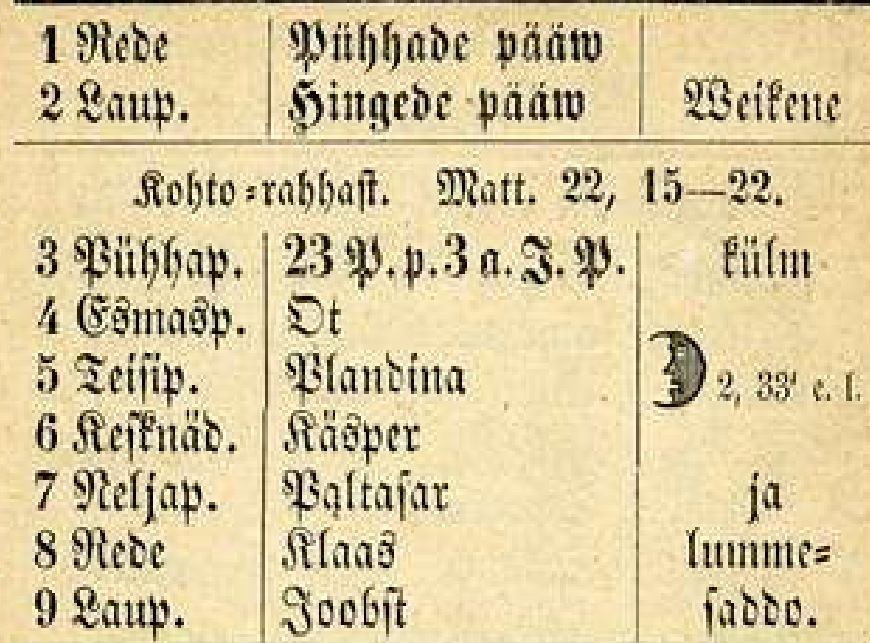 1 Rede Pühhade pääw
2 Laup. Hingede pääw Weikene
Kohto-rahhast. Matt. 22, 15—22.
3 Pühhap. 23 P. p. 3 a. J. P. külm
4 Esmasp. Ot
5 Teisip. Plandina 2, 33' e. l.
6 Kesknäd. Käsper
7 Neljap. Paltasar ja
8 Rede Klaas lumme-
9 Laup. Joobst saddo.